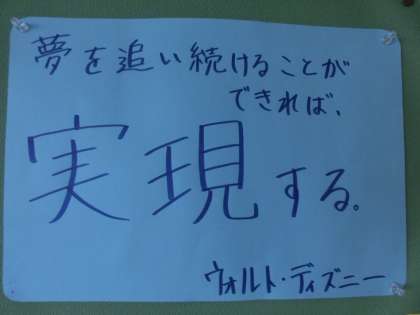 夢を追い続けることが
できれば、
実現する。
ウォルト・ディズニー